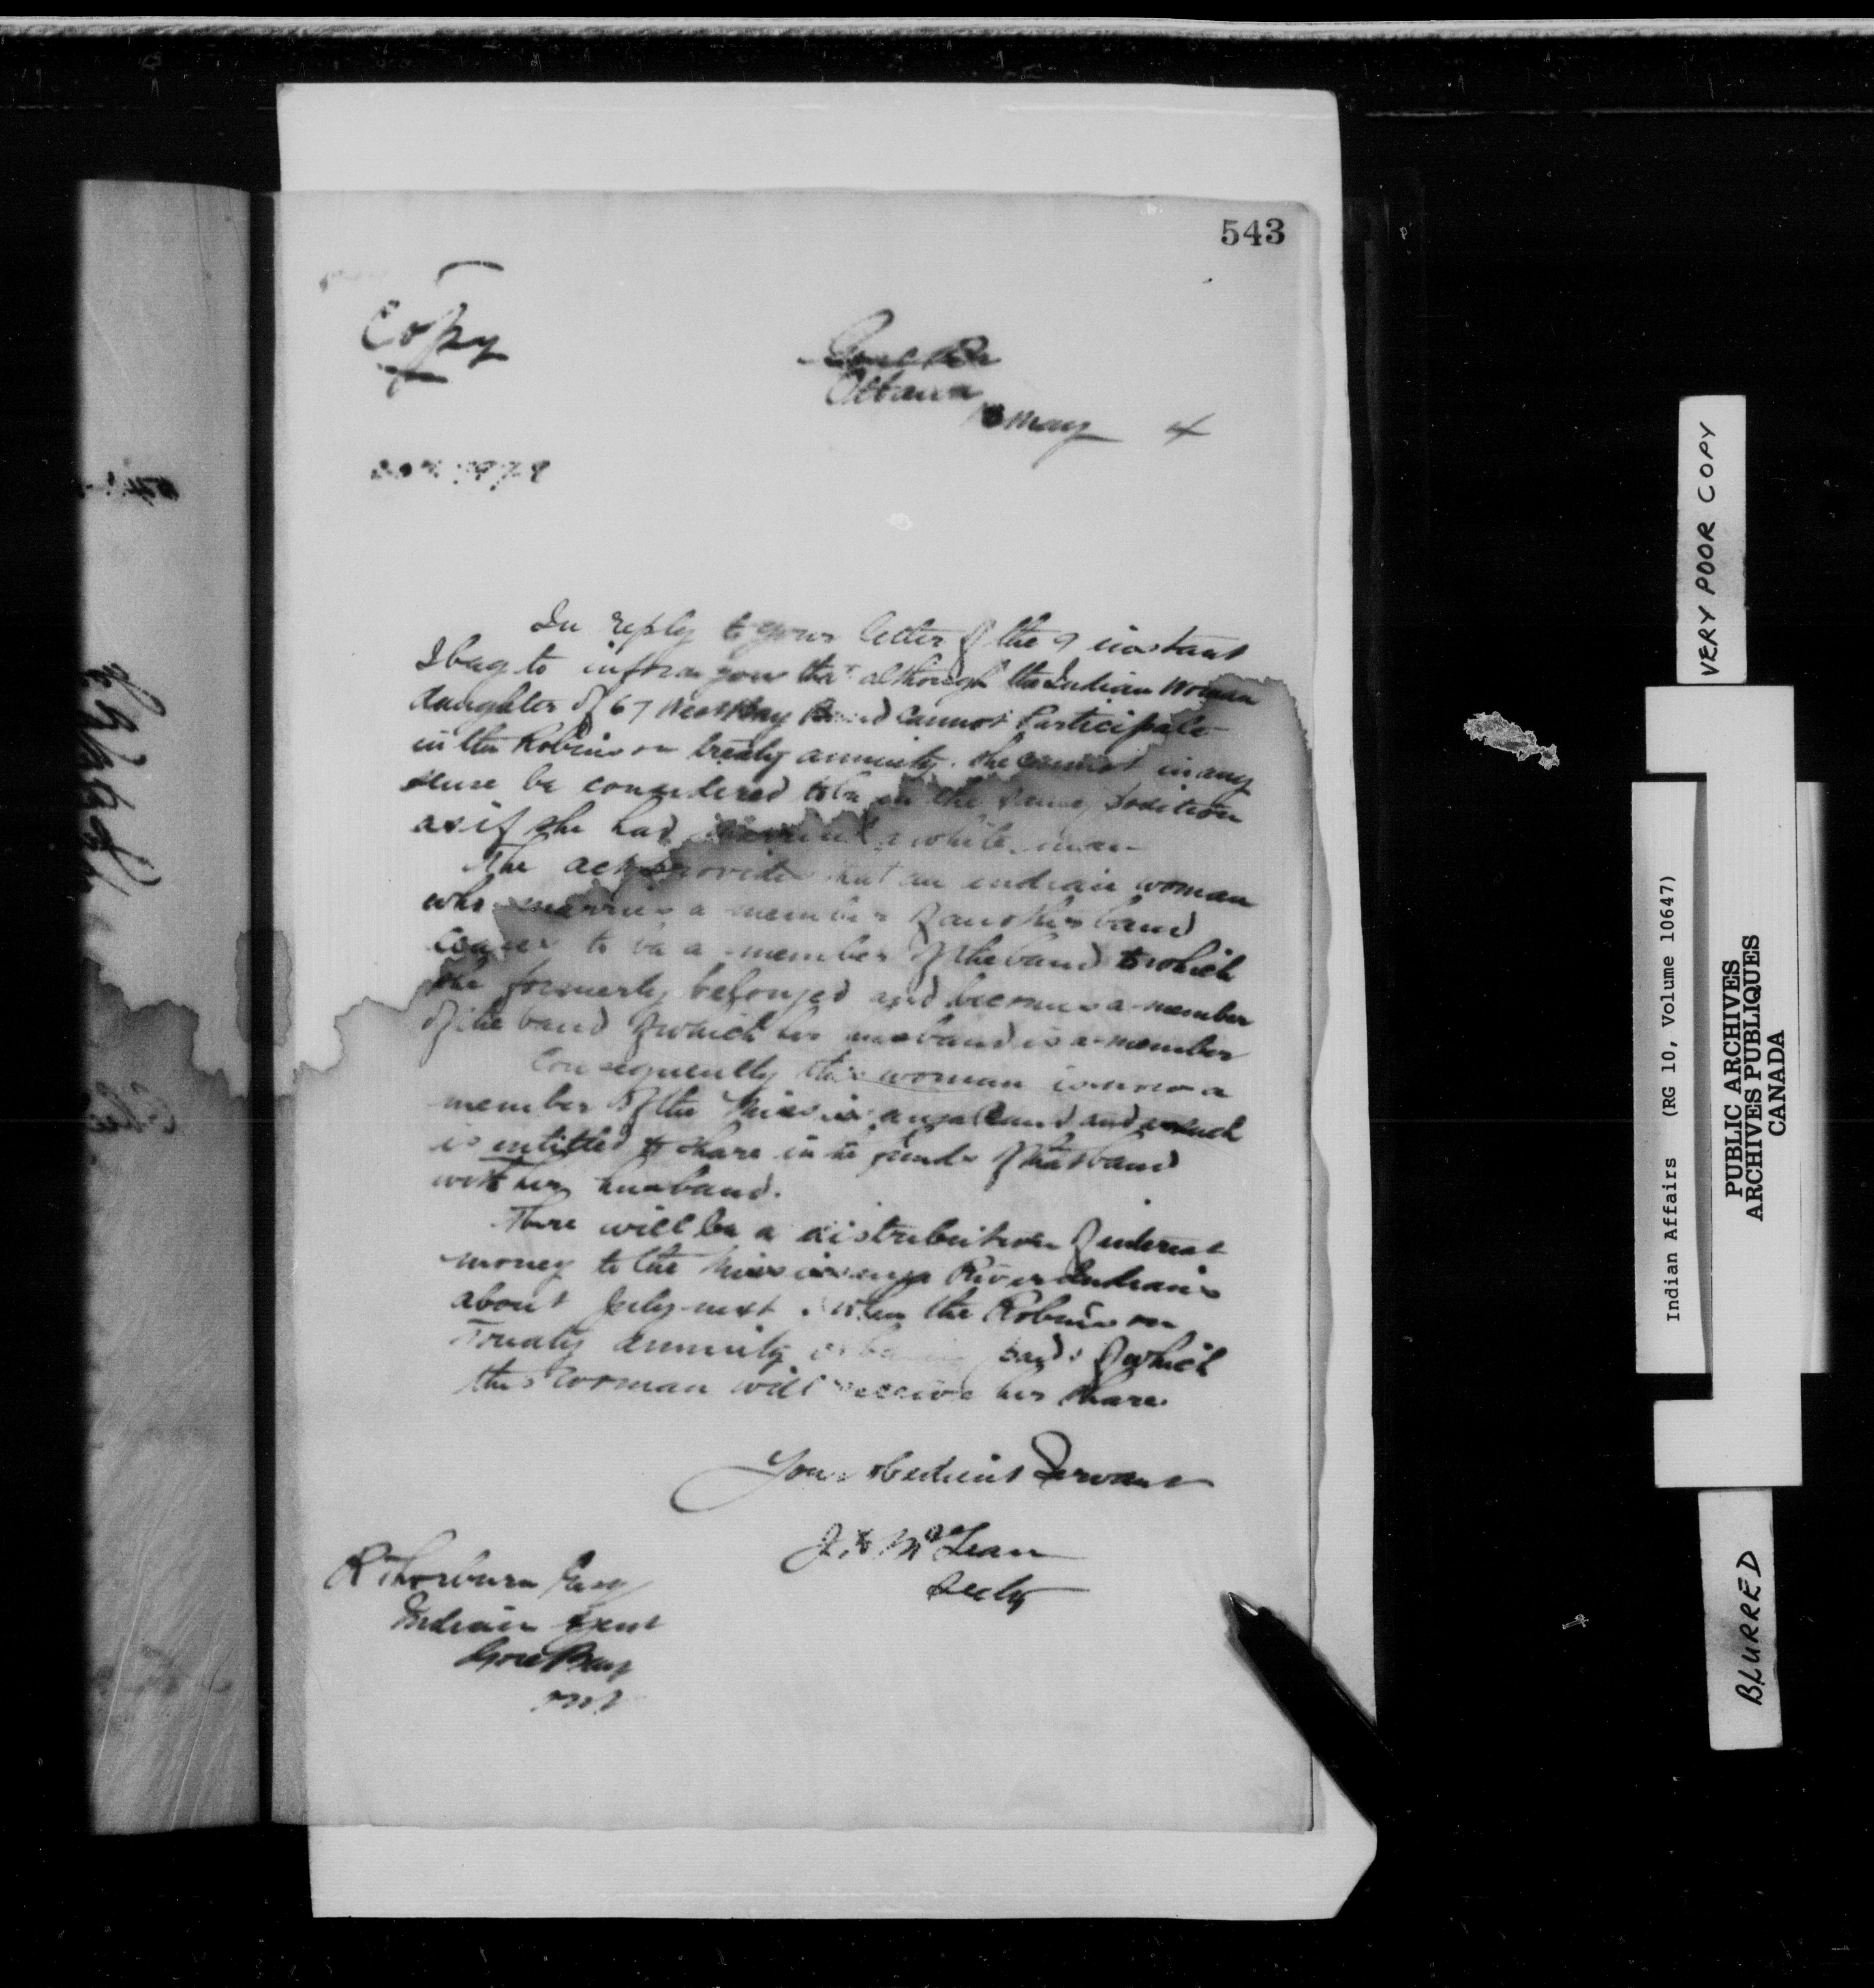 543
Copy
Ottawa
May 4
In reply to your letter of the 9 instant
I beg to inform you that although the Indian woman
daughter of 67 West Bay Band cannot Participate
in the Robinson treaty annuity. She cannot in any
sense be considered to be in the same position
as if she had married a white man
The act provides that an indian woman
who marries a member of another band
ceases to be a member of the band to which
she formerly belonged and becomes a member
of the band of which her husband is a member
Consequently this woman is now a
member of the Mississauga Band and as such
is entitled to share in the funds of that band
with her husband.
There will be a distribution of interest
money to the Mississauga River Indians
about July next. when the Robinson
Treaty annuity is being paid of which
this woman will receive her share.
Your obedient Servant
J. D. McLean
Secty
R Thorburn Esq
Indian Agent
Gore Bay
Ont
VERY POOR COPY
Indian Affairs (RG 10, Volume 10647)
PUBLIC ARCHIVES
ARCHIVES PUBLIQUES
CANADA
BLURRED